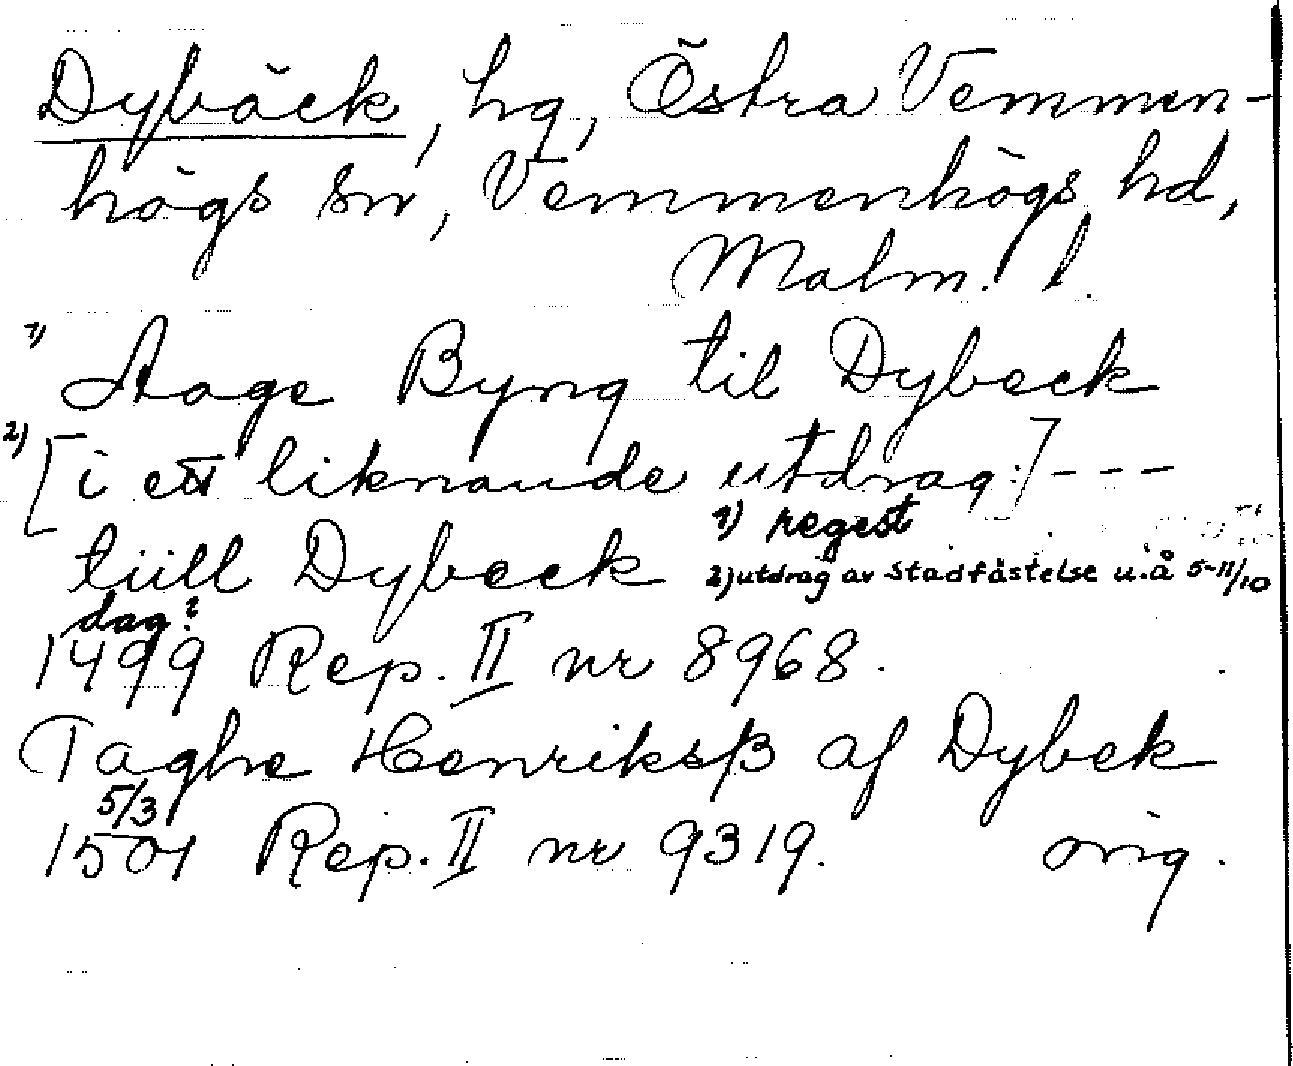 Dybäck, hg, Östra Vemmen-
högs sn, Vemmenhögs hd,
Malm. l.
1) Aage Byng til Dybeck
2) [i ett liknande utdrag:] - - -
1) regest
tiill Dybeck 2) utdrag av stadfästelse u.å 5-11/10
dag?
1499 Rep. II nr 8968.
Taghe Henriksß af Dybek
5/3
1501 Rep. II nr 9319. orig.